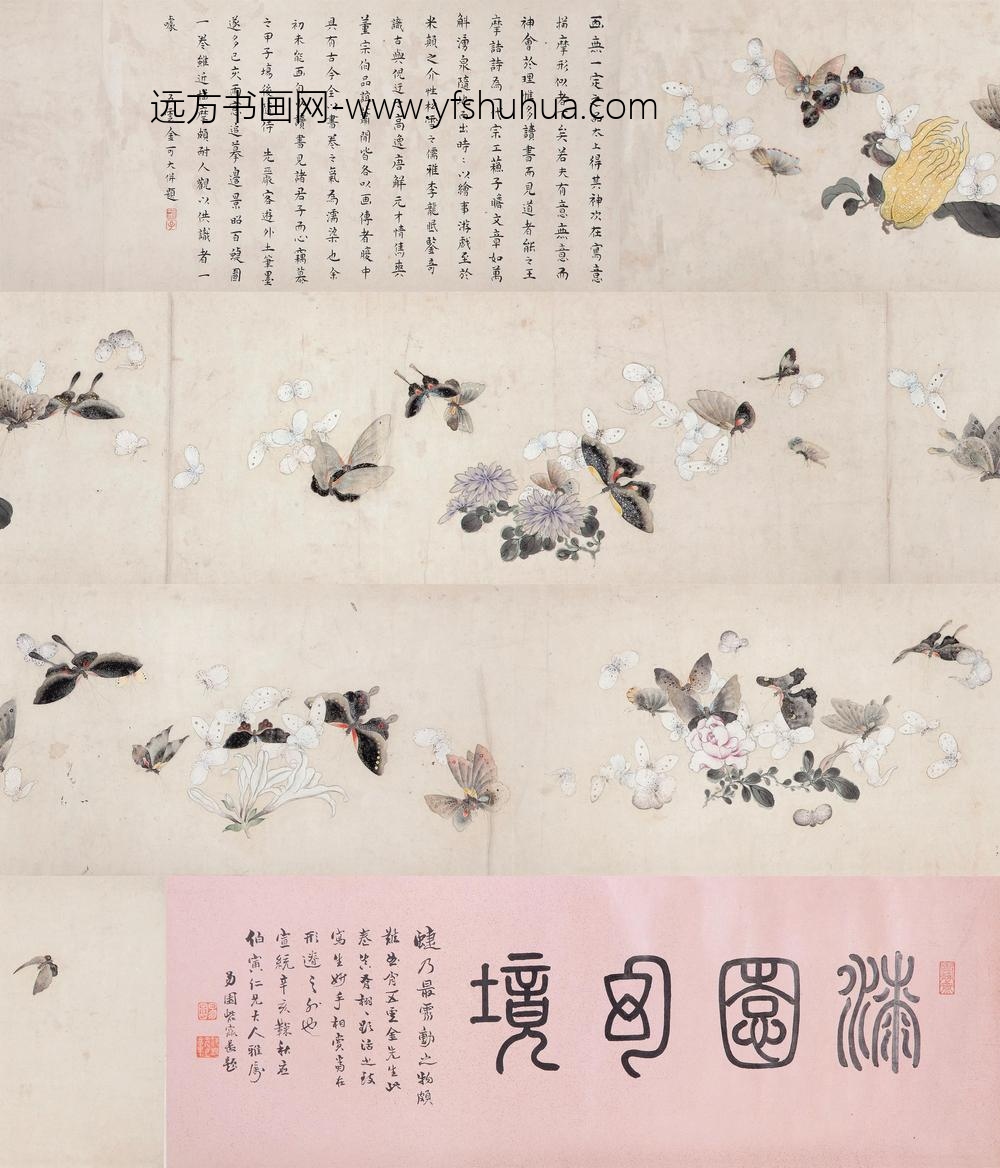 远方书画网-www.yfshuhua.com
画無一定之太上得其神次在寫意
描摩形似者矣若夫有意無意而
神會於理惟多讀書而見道者能之王
摩詰詩為一代宗工蘇子瞻文章如萬
斛湧泉隨出時以繪事游戲至於
米顛之介性松雪之儒雅李龍眠鑒奇
識古與倪迂之高逸唐解元才情雋爽
董宗伯品詣蕭閒皆各以画傳者腹中
具有古今全以書卷之氣為濡染也余
初未能画自讀書見諸君子而心竊慕
之甲子場後侍先嚴客遊外土筆墨
遂多己亥道摹邊景昭百蜨圖
一卷雖近描摩頗耐人觀以供識者一
噱
金可大併題
漆園幻境
蜨乃最靈動之物頗
難肖五雲金先生此
卷栩栩活之致
寫生妙手相賞當在
形迹之外也
宣統辛亥秋應
伯寅仁兄大人雅屬